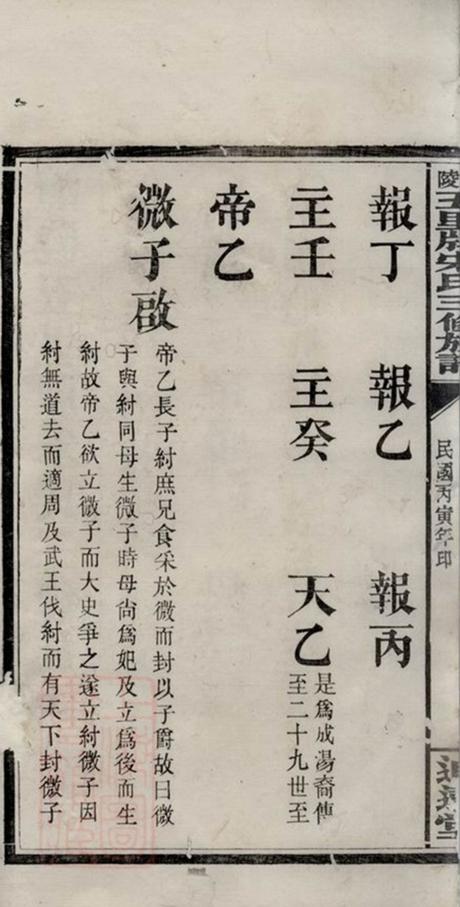 報丁　報乙　報丙
主壬　主癸　天乙
是為成湯裔傳
至二十九世至
帝乙
微子啟
帝乙長子紂庶兄食采於微而封以子爵故曰微
子與紂同母生微子時母尙為妃及立為後而生
紂故帝乙欲立微子而大史爭之遂立紂微子因
紂無道去而適周及武王伐紂而有天下封微子
宋氏三修族譜
民國丙寅年印